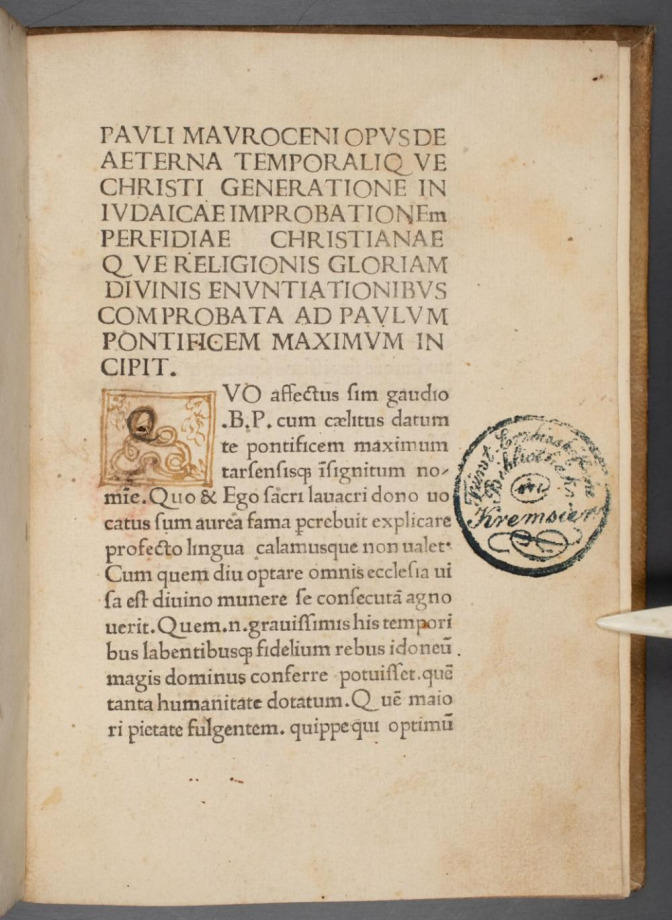 PAVLI MAVROCENI OPVS DE
AETERNA TEMPORALIQ VE
CHRISTI GENERATIONE IN
IVDAICAE IMPROBATIONEm
PERFIDIAE CHRISTIANAE
Q VE RELIGIONIS GLORIAM
DIVINIS ENVNTIATIONIBVS
COMPROBATA AD PAVLVM
PONTIFICEM MAXIMVM IN
CIPIT.
Q VO affectus sim gaudio
.B.P. cum cælitus datum
te pontificem maximum
tarsensisqȝ īsignitum no-
mīe. Quo & Ego sacri lauacri dono uo
catus sum aurea fama percrebuit explicare
profecto lingua calamusque non ualet.
Cum quem diu optare omnis ecclesia ui
sa est diuino munere se consecutā agno
uerit. Quem .n. grauissimis his tempori
bus labentibusqȝ fidelium rebus idoneū .
magis dominus conferre potuisset. quē
tanta humanitate dotatum. Q uē maio
ri pietate fulgentem. quippe qui optimū
Fürst-Erzbischöfliche
Bibliothek
in
Kremsier